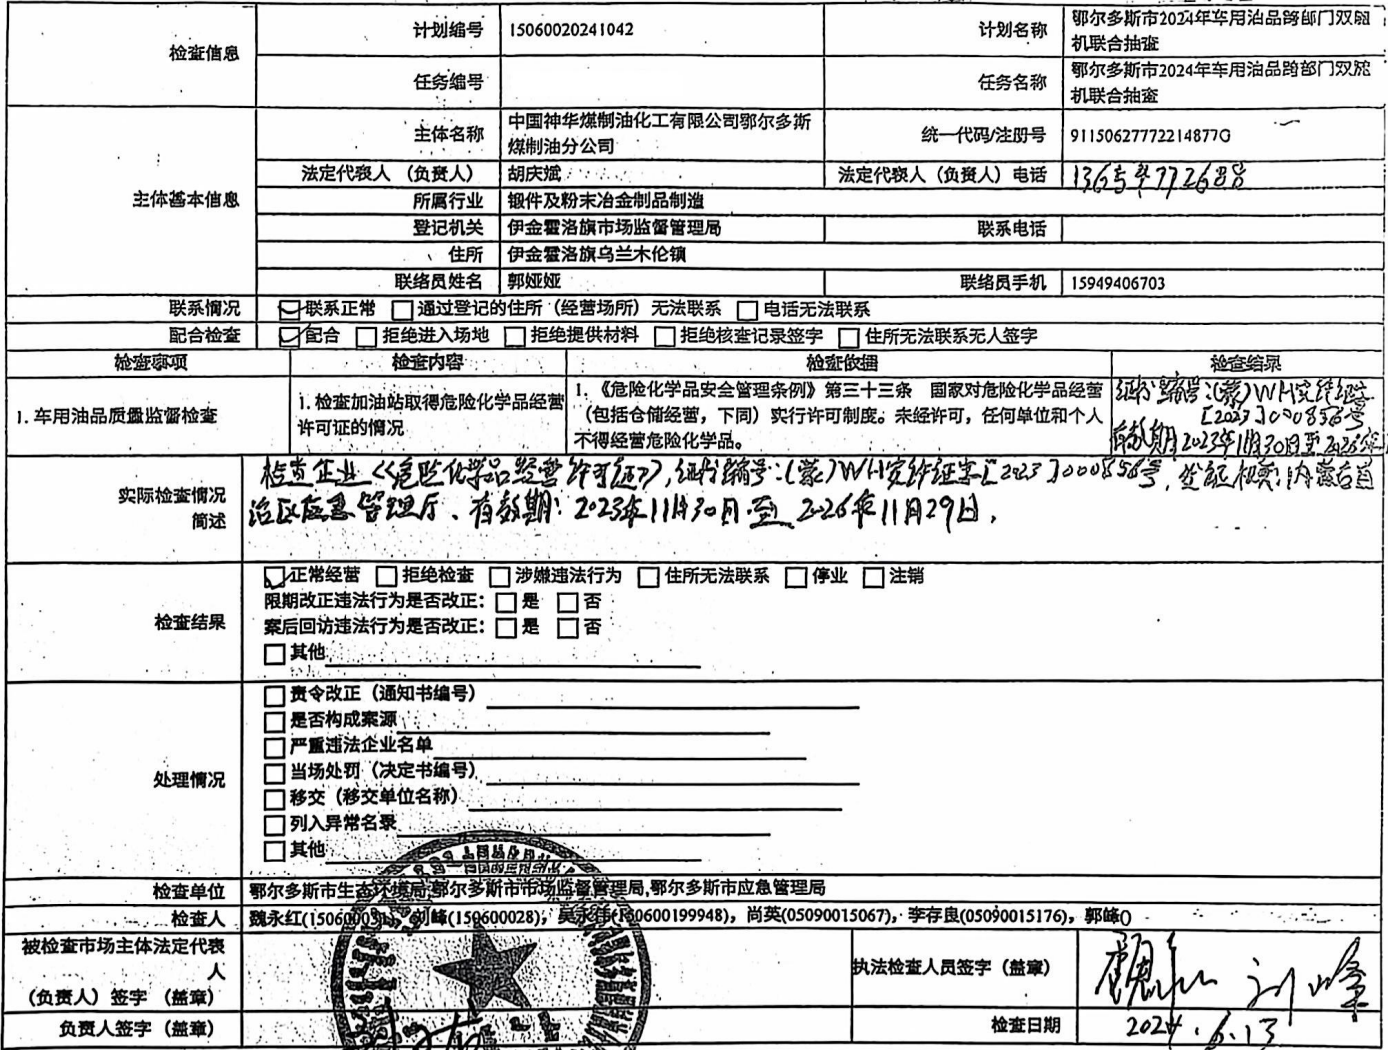 检查信息
计划编号 15060020241042 计划名称 鄂尔多斯市2024年车用油品跨部门双随
机联合抽查
任务编号 任务名称 鄂尔多斯市2024年车用油品跨部门双随
机联合抽查
主体基本信息
主体名称 中国神华煤制油化工有限公司鄂尔多斯
煤制油分公司
统一代码/注册号 91150627772214877G
法定代表人（负责人） 胡庆斌 法定代表人（负责人）电话
所属行业 锻件及粉末冶金制品制造
登记机关 伊金霍洛旗市场监督管理局 联系电话
住所 伊金霍洛旗乌兰木伦镇
联络员姓名 郭娅娅 联络员手机 15949406703
联系情况 联系正常 通过登记的住所（经营场所）无法联系 电话无法联系
配合检查 配合 拒绝进入场地 拒绝提供材料 拒绝核查记录签字 住所无法联系无人签字
检查事项 检查内容 检查依据 检查结果
1. 车用油品质量监督检查
1. 检查加油站取得危险化学品经营
许可证的情况
1. 《危险化学品安全管理条例》第三十三条 国家对危险化学品经营
（包括仓储经营，下同）实行许可制度。未经许可，任何单位和个人
不得经营危险化学品。
证书编号:(蒙)WH安许证字
[2023]000856号
有效期2023年11月30日至2026年
实际检查情况
简述
检查企业《危险化学品经营许可证》,证书编号:(蒙)WH安许证字[2023]000856号,发证机关:内蒙古自
治区应急管理厅、有效期:2023年11月30日至2026年11月29日.
检查结果
正常经营 拒绝检查 涉嫌违法行为 住所无法联系 停业 注销
限期改正违法行为是否改正： 是 否
案后回访违法行为是否改正： 是 否
其他
处理情况
责令改正（通知书编号）
是否构成案源
严重违法企业名单
当场处罚（决定书编号）
移交（移交单位名称）
列入异常名录
其他
检查单位 鄂尔多斯市生态环境局,鄂尔多斯市市场监督管理局,鄂尔多斯市应急管理局
检查人 魏永红 刘峰(150600028)，吴永伟(150600199948)，尚英(05090015067)，李存良(05090015176)，郭峰()
被检查市场主体法定代表
人
（负责人）签字 （盖章）
执法检查人员签字（盖章） 刘峰
负责人签字（盖章）
检查日期 2024.6.13